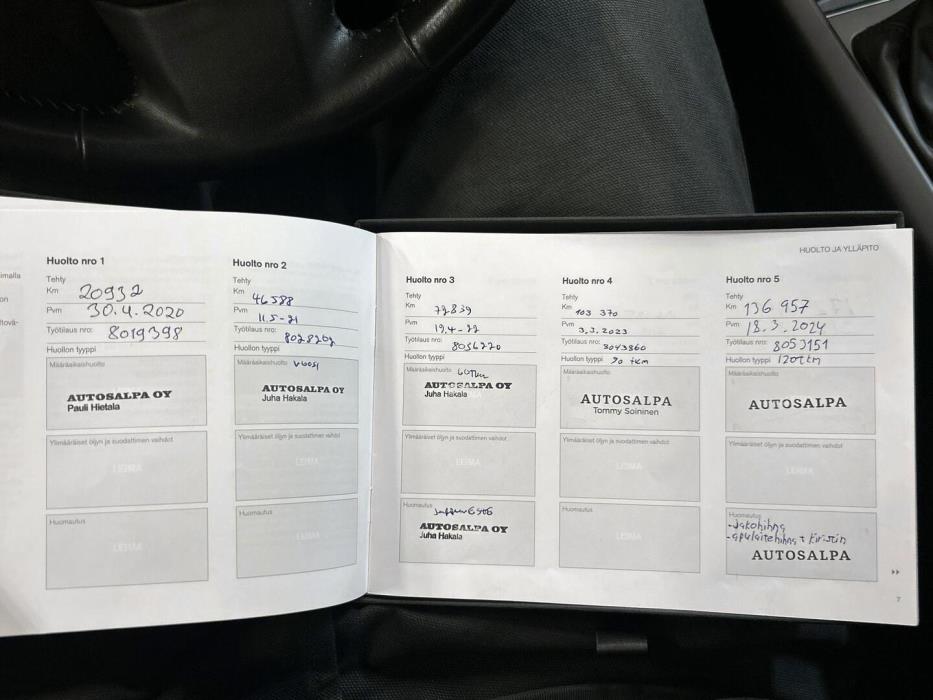 imalla
on
ltövä-
Huolto nro 1
Tehty
Km 20932
Pvm 30.4.2020
Työtilaus nro: 8019398
Huollon tyyppi
Määräaikaishuolto
AUTOSALPA OY
Pauli Hietala
Ylimääräiset öljyn ja suodattimen vaihdot
LEIMA
Huomautus
LEIMA
Huolto nro 2
Tehty
Km 46588
Pvm 11.5-21
Työtilaus nro: 8028202
Huollon tyyppi
Määräaikaishuolto vuosi
AUTOSALPA OY
Juha Hakala
Ylimääräiset öljyn ja suodattimen vaihdot
LEIMA
Huomautus
LEIMA
HUOLTO JA YLLÄPITO
Huolto nro 3
Tehty
Km 72839
Pvm 19.4-22
Työtilaus nro: 8036220
Huollon tyyppi
Määräaikaishuolto 60Tkm
AUTOSALPA OY
Juha Hakala
Ylimääräiset öljyn ja suodattimen vaihdot
LEIMA
Huomautus
AUTOSALPA OY
Juha Hakala
Huolto nro 4
Tehty
Km 103 370
Pvm 3.3.2023
Työtilaus nro: 8043860
Huollon tyyppi 90 tkm
Määräaikaishuolto
AUTOSALPA
Tommy Soininen
Ylimääräiset öljyn ja suodattimen vaihdot
LEIMA
Huomautus
LEIMA
Huolto nro 5
Tehty
Km 136 957
Pvm 18.3.2024
Työtilaus nro: 8053151
Huollon tyyppi 120tkm
Määräaikaishuolto
AUTOSALPA
Ylimääräiset öljyn ja suodattimen vaihdot
LEIMA
Huomautus
-Jakohihna
-apulaitehihna + kiristin
AUTOSALPA
7